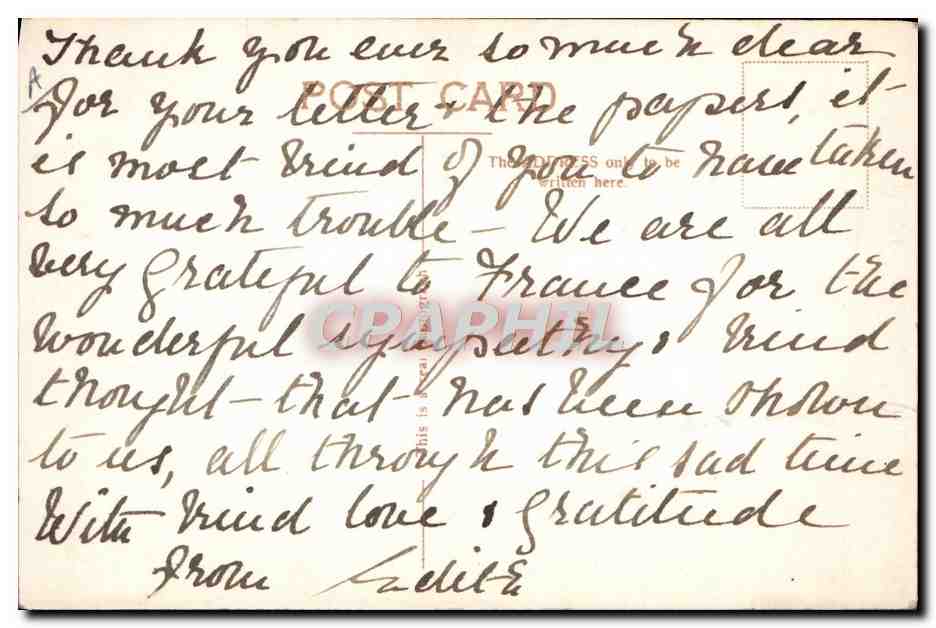 A
Thank you ever so much dear
POST CARD
for your letter & the papers, it
The ADDRESS only to be
written here.
is most kind of you to have taken
so much trouble – We are all
very grateful to France for the
CPAPHIL
wonderful sympathy & kind
This is a real photograph
thought – that has been shown
to us, all through this sad time
With kind love & gratitude
from Edith